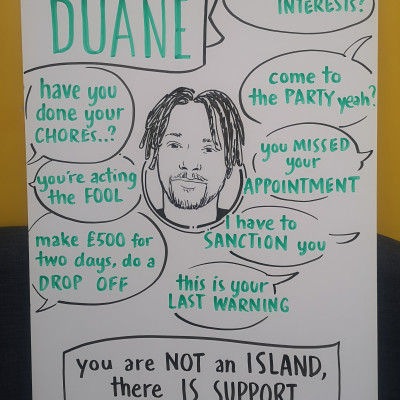 DUANE
INTERESTS?
have you
done your
CHORES..?
come to
the PARTY yeah?
you're acting
the FOOL
you MISSED
your
APPOINTMENT
make £500 for
two days, do a
DROP OFF
I have to
SANCTION you
this is your
LAST WARNING
you are NOT an ISLAND,
there IS SUPPORT